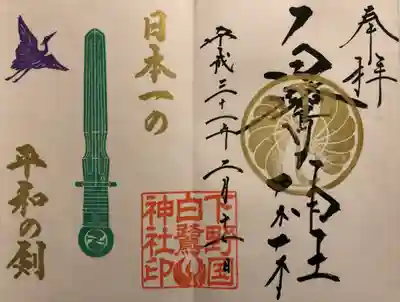 奉拝
平成三十一年二月十一日
下野国
白鷺
神社印
日本一の
平和の剣